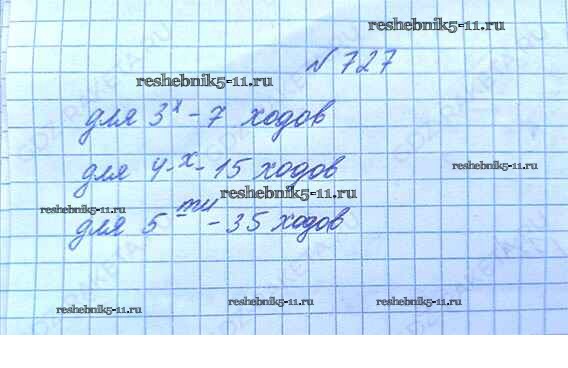 reshebnik5-11.ru
№ 727
reshebnik5-11.ru
для 3х - 7 ходов
для 4-х - 15 ходов
reshebnik5-11.ru
reshebnik5-11.ru
reshebnik5-11.ru
для 5ти - 35 ходов
reshebnik5-11.ru
reshebnik5-11.ru
reshebnik5-11.ru